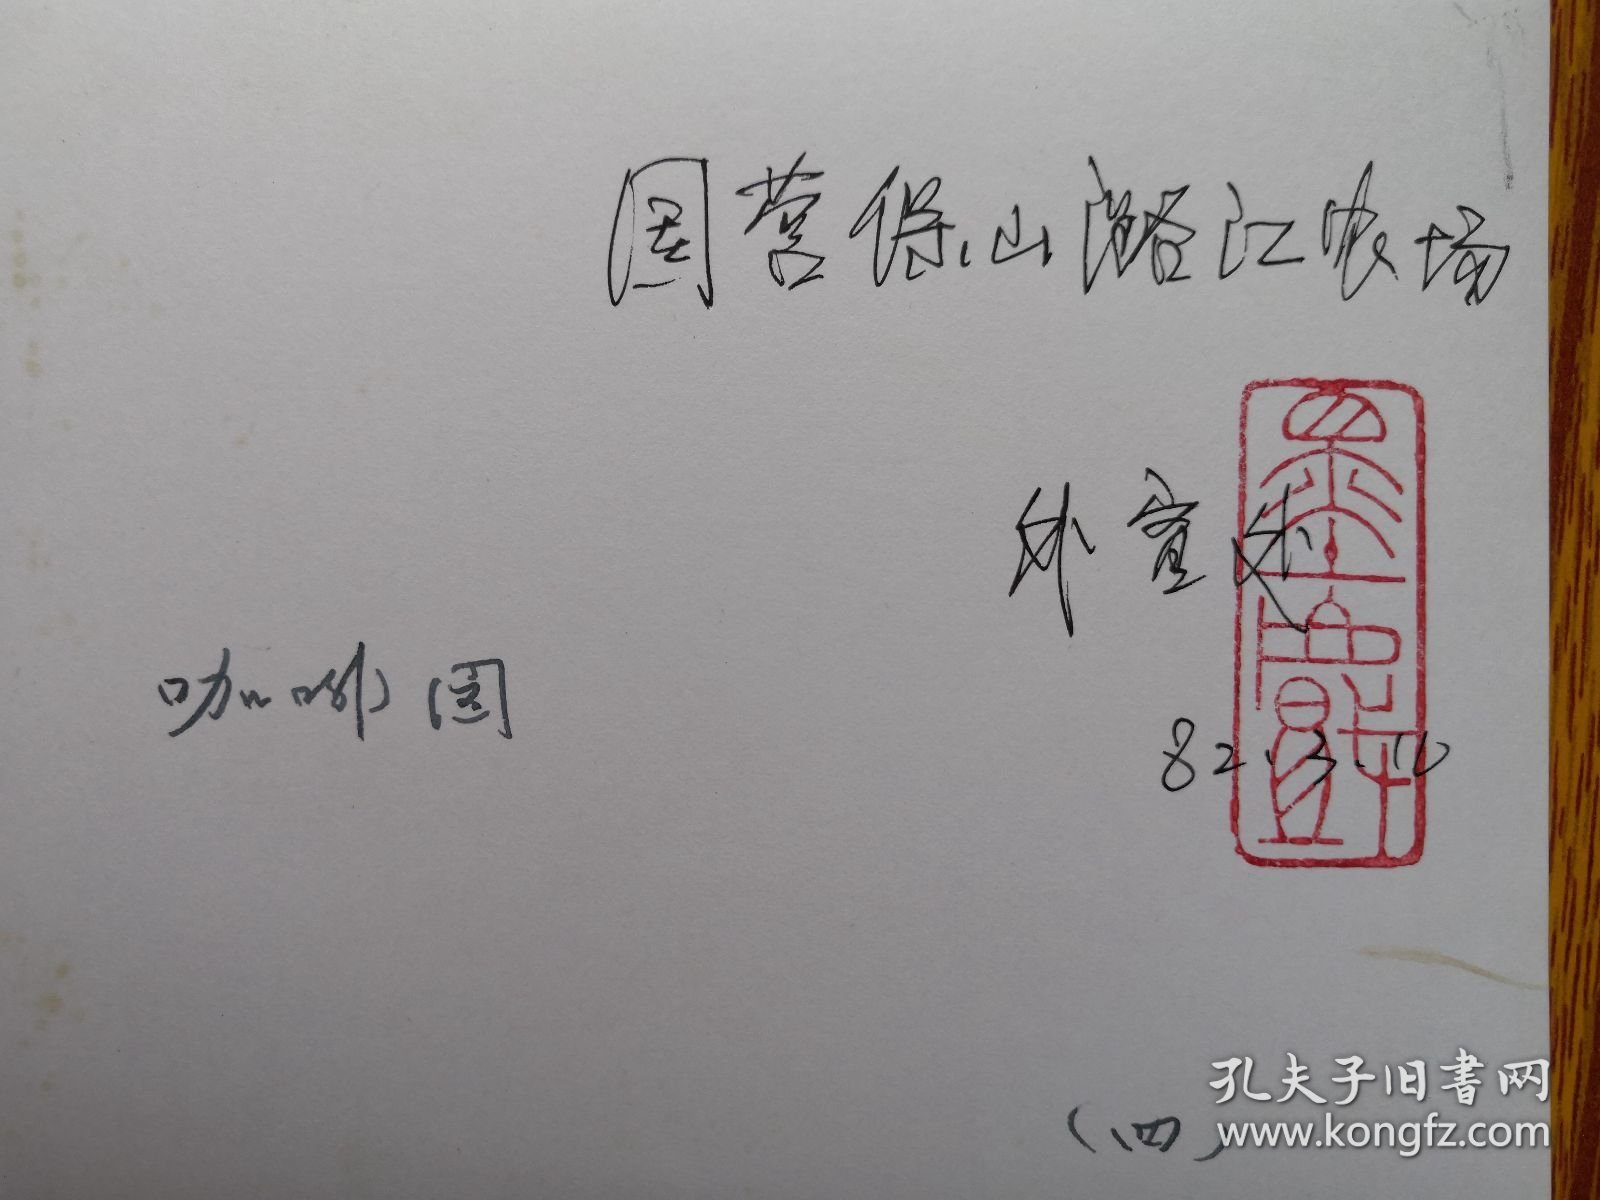 国营保山潞江农场
82.3.10
咖啡园
(四)
孔夫子旧书网
www.kongfz.com